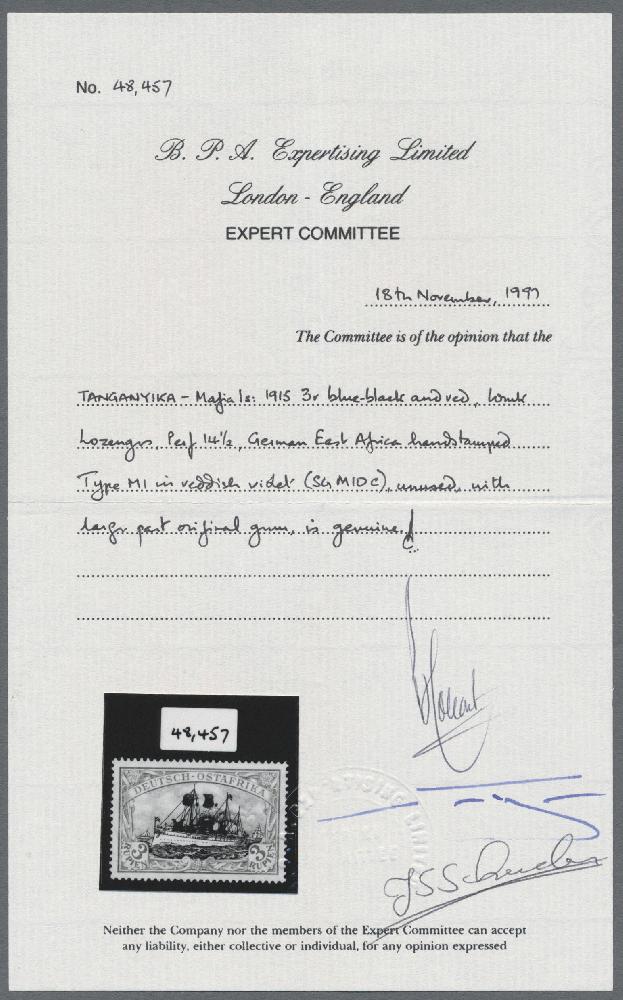 No. 48,457
B. P. A. Expertising Limited
London - England
EXPERT COMMITTEE
18th November, 1997
The Committee is of the opinion that the
TANGANYIKA - Mafia Is: 1915 3r blue-black and red, wmk
Lozenges, Perf 14½, German East Africa handstamped
Type M1 in reddish violet (SG M10c), unused, with
large part original gum, is genuine.
48,457
DEUTSCH-OSTAFRIKA
3 3
RUPIEN RUPIEN
Neither the Company nor the members of the Expert Committee can accept
any liability, either collective or individual, for any opinion expressed